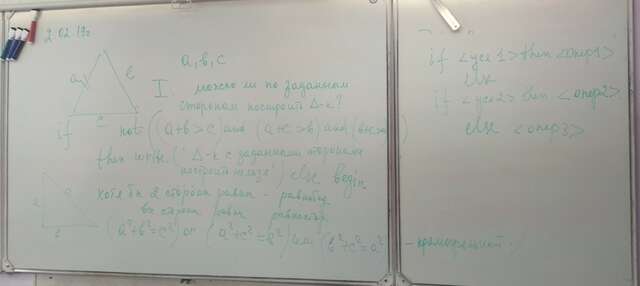 2.02.19г
a, b, c
a
b
c
I. можно ли по заданным
сторонам построить Δ-к?
if not (a+b>c) and (a+c>b) and (b+c>a)
then write ('Δ-к с заданными сторонами
построить нельзя') else Begin
хотя бы 2 стороны равны - равнобед
все стороны равны равностор
(a²+b²=c²) or (a²+c²=b²) или (b²+c²=a²
- прямоугольный.
if <усл 1> then <опер1>
else
if <усл2> then <опер2>
else <опер3>